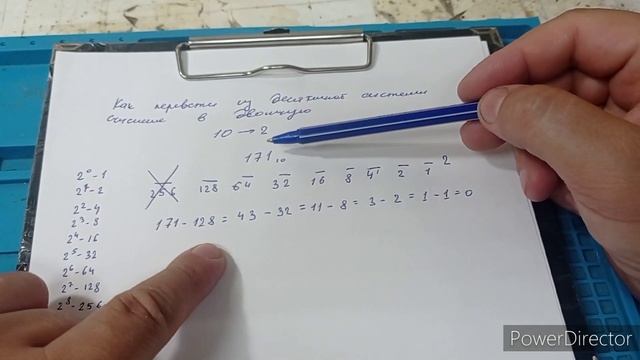 Как перевести из десятичной системы
счисления в двоичную
10 → 2
171₁₀
2⁰-1
2¹-2
2²-4
2³-8
2⁴-16
2⁵-32
2⁶-64
2⁷-128
2⁸-256
256 128 64 32 16 8 4 2 1 2
171-128=43-32=11-8=3-2=1-1=0
PowerDirector